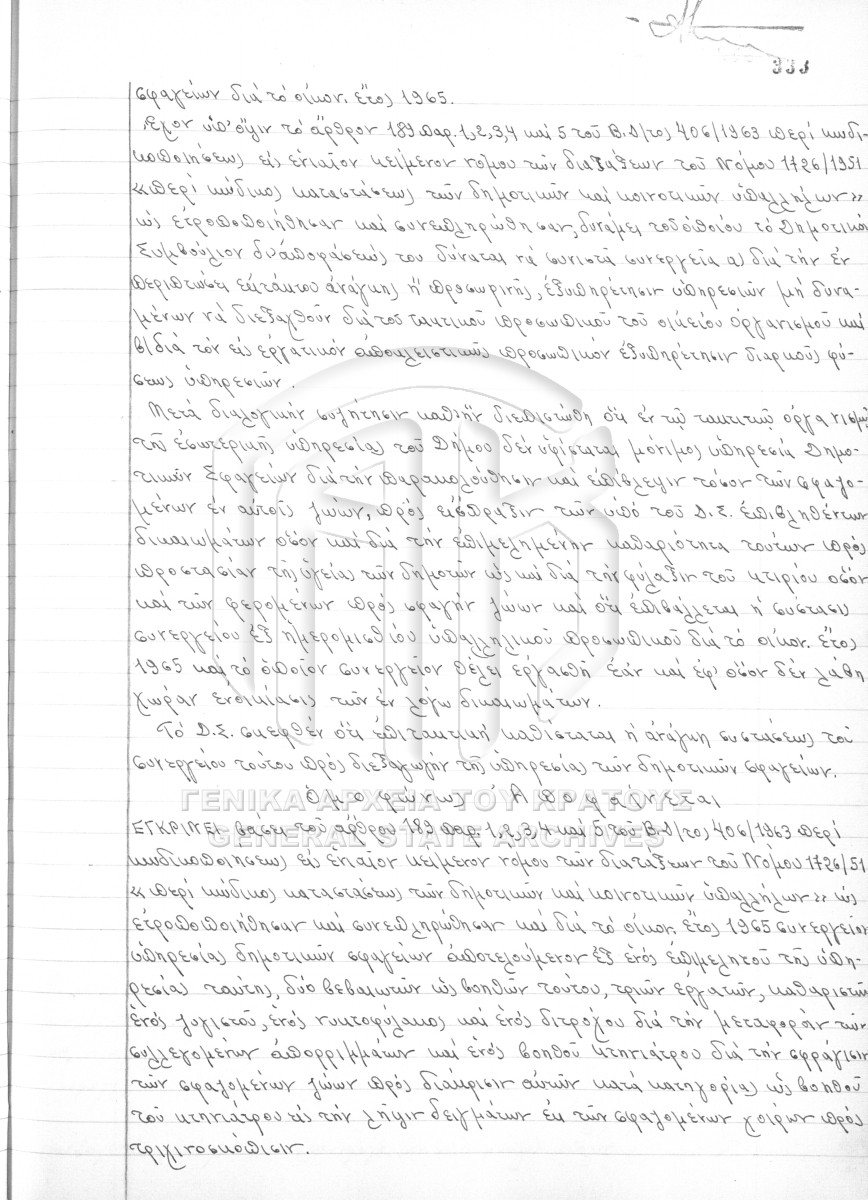 333
σφαγείων διά τό οίκον. έτος 1965.
Έχον υπ' όψιν τό άρθρον 189 παρ. 1,2,3,4 καί 5 τού Β.Δ/τος 406/1963 περί κωδι-
κοποιήσεως είς ενιαίον κείμενον νόμου τών διατάξεων τού Νόμου 1726/1951
«περί κώδικος καταστάσεως τών δημοτικών καί κοινοτικών υπαλλήλων»
ώς ετροποποιήθησαν καί συνεπληρώθησαν, δυνάμει τού οποίου τό Δημοτικόν
Συμβούλιον δι' αποφάσεώς του δύναται νά συνιστά συνεργεία α) διά τήν έν
περιπτώσει εκτάκτου ανάγκης ή προσωρινής, εξυπηρέτησιν υπηρεσιών μή δυνα-
μένων νά διεξαχθούν διά τού τακτικού προσωπικού τού οικείου οργανισμού καί
β) διά τόν είς εργατικόν αποκλειστικώς προσωπικόν εξυπηρέτησιν διαρκούς φύ-
σεως υπηρεσιών.
Μετά διαλογικήν συζήτησιν καθ' ήν διεπιστώθη ότι εν τώ τακτικώ οργανισμώ
τής εσωτερικής υπηρεσίας τού Δήμου δέν υφίσταται μόνιμος υπηρεσία Δημο-
τικών Σφαγείων διά τήν παρακολούθησιν καί επίβλεψιν τόσον τών σφαζο-
μένων εν αυτοίς ζώων, πρός είσπραξιν τών υπό τού Δ.Σ. επιβληθέντων
δικαιωμάτων όσον καί διά τήν επιμελημένην καθαριότητα τούτων πρός
προστασίαν τής υγείας τών δημοτών ώς καί διά τήν φύλαξιν τού κτιρίου όσον
καί τών φερομένων πρός σφαγήν ζώων καί ότι επιβάλλεται ή σύστασις
συνεργείου εξ ημερομισθίου υπαλληλικού προσωπικού διά τό οίκον. έτος
1965 καί τό οποίον συνεργείον θέλει εργασθή εάν καί εφ' όσον δέν λάβη
χώραν ενοικίασις τών έν λόγω δικαιωμάτων.
Τό Δ.Σ. σκεφθέν ότι επιτακτική καθίσταται ή ανάγκη συστάσεως τού
συνεργείου τούτου πρός διεξαγωγήν τής υπηρεσίας τών δημοτικών σφαγείων.
Ομοφώνως Αποφαίνεται
ΓΕΝΙΚΑ ΑΡΧΕΙΑ ΤΟΥ ΚΡΑΤΟΥΣ
ΕΓΚΡΙΝΕΙ βάσει τού άρθρου 189 παρ. 1,2,3,4 καί 5 τού Β.Δ/τος 406/1963 περί
GENERAL STATE ARCHIVES
κωδικοποιήσεως είς ενιαίον κείμενον νόμου τών διατάξεων τού Νόμου 1726/51
«περί κώδικος καταστάσεως τών δημοτικών καί κοινοτικών υπαλλήλων» ώς
ετροποποιήθησαν καί συνεπληρώθησαν καί διά τό οίκον. έτος 1965 συνεργείον
υπηρεσίας δημοτικών σφαγείων αποτελούμενον εξ ενός επιμελητού τής υπη-
ρεσίας ταύτης, δύο βεβαιωτών ώς βοηθών τούτου, τριών εργατών, καθαριστών
ενός λογιστού, ενός νυκτοφύλακος καί ενός διτρόχου διά τήν μεταφοράν τών
συλλεγομένων απορριμμάτων καί ενός βοηθού κτηνιάτρου διά τήν σφράγισιν
τών σφαζομένων ζώων πρός διάκρισιν αυτών κατά κατηγορίας ώς βοηθού
τού κτηνιάτρου είς τήν λήψιν δειγμάτων έκ τών σφαζομένων χοίρων πρός
τριχινοσκόπισιν.